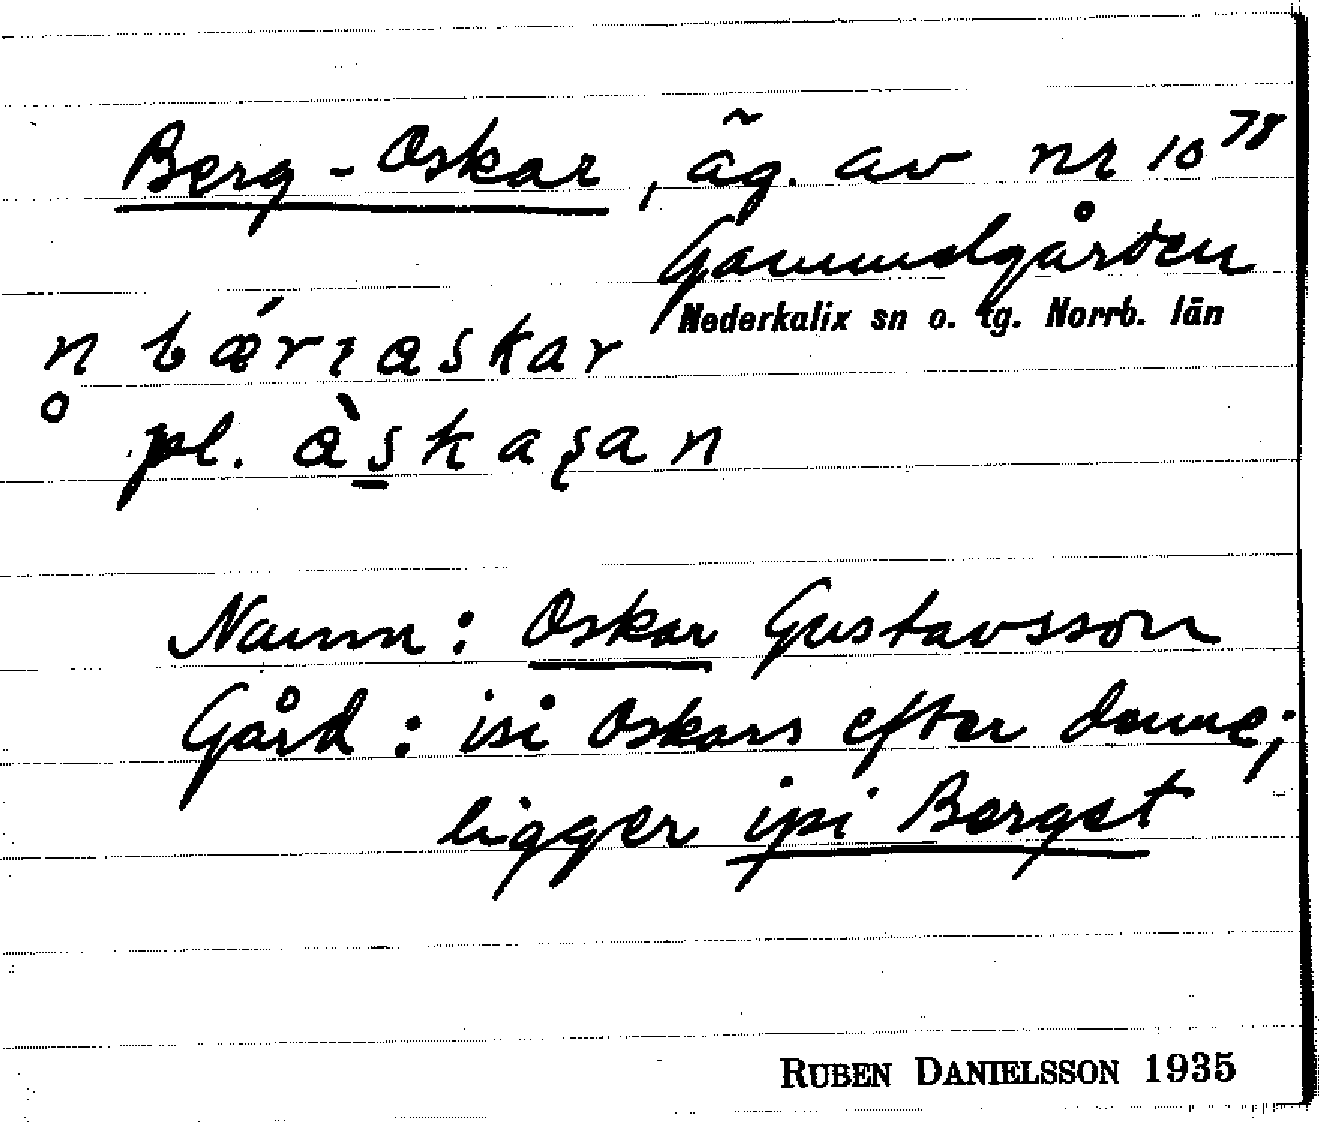 Berg-Oskar, äg. av nr 10⁷⁸
Gammelgården
Nederkalix sn o. tg. Norrb. län
n̊ bǽrɪaskar
pl. àskaʂan
Namn: Oskar Gustavsson
Gård: isi Oskars efter denne;
ligger ipi Berget
RUBEN DANIELSSON 1935